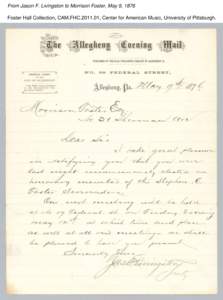 From Jason F. Livingston to Morrison Foster, May 9, 1876
Foster Hall Collection, CAM.FHC.2011.01, Center for American Music, University of Pittsburgh.
The Allegheny Evening Mail
NO. 80 FEDERAL STREET,
Allegheny, Pa. May 9th 1876
Morrison Foster Esq
No 21 Sherman Ave
Dear Sir
I take great pleasure
in notifying you that you were
last night unanimously elected an
honorary member of the Stephen C.
Foster Serenaders.
Our next meeting will be held
at Federal St. on Friday Evening
May 12th at which time and place
as well at all our meetings we shall
be pleased to have you present
Sincerely Yours
Jas F Livingston